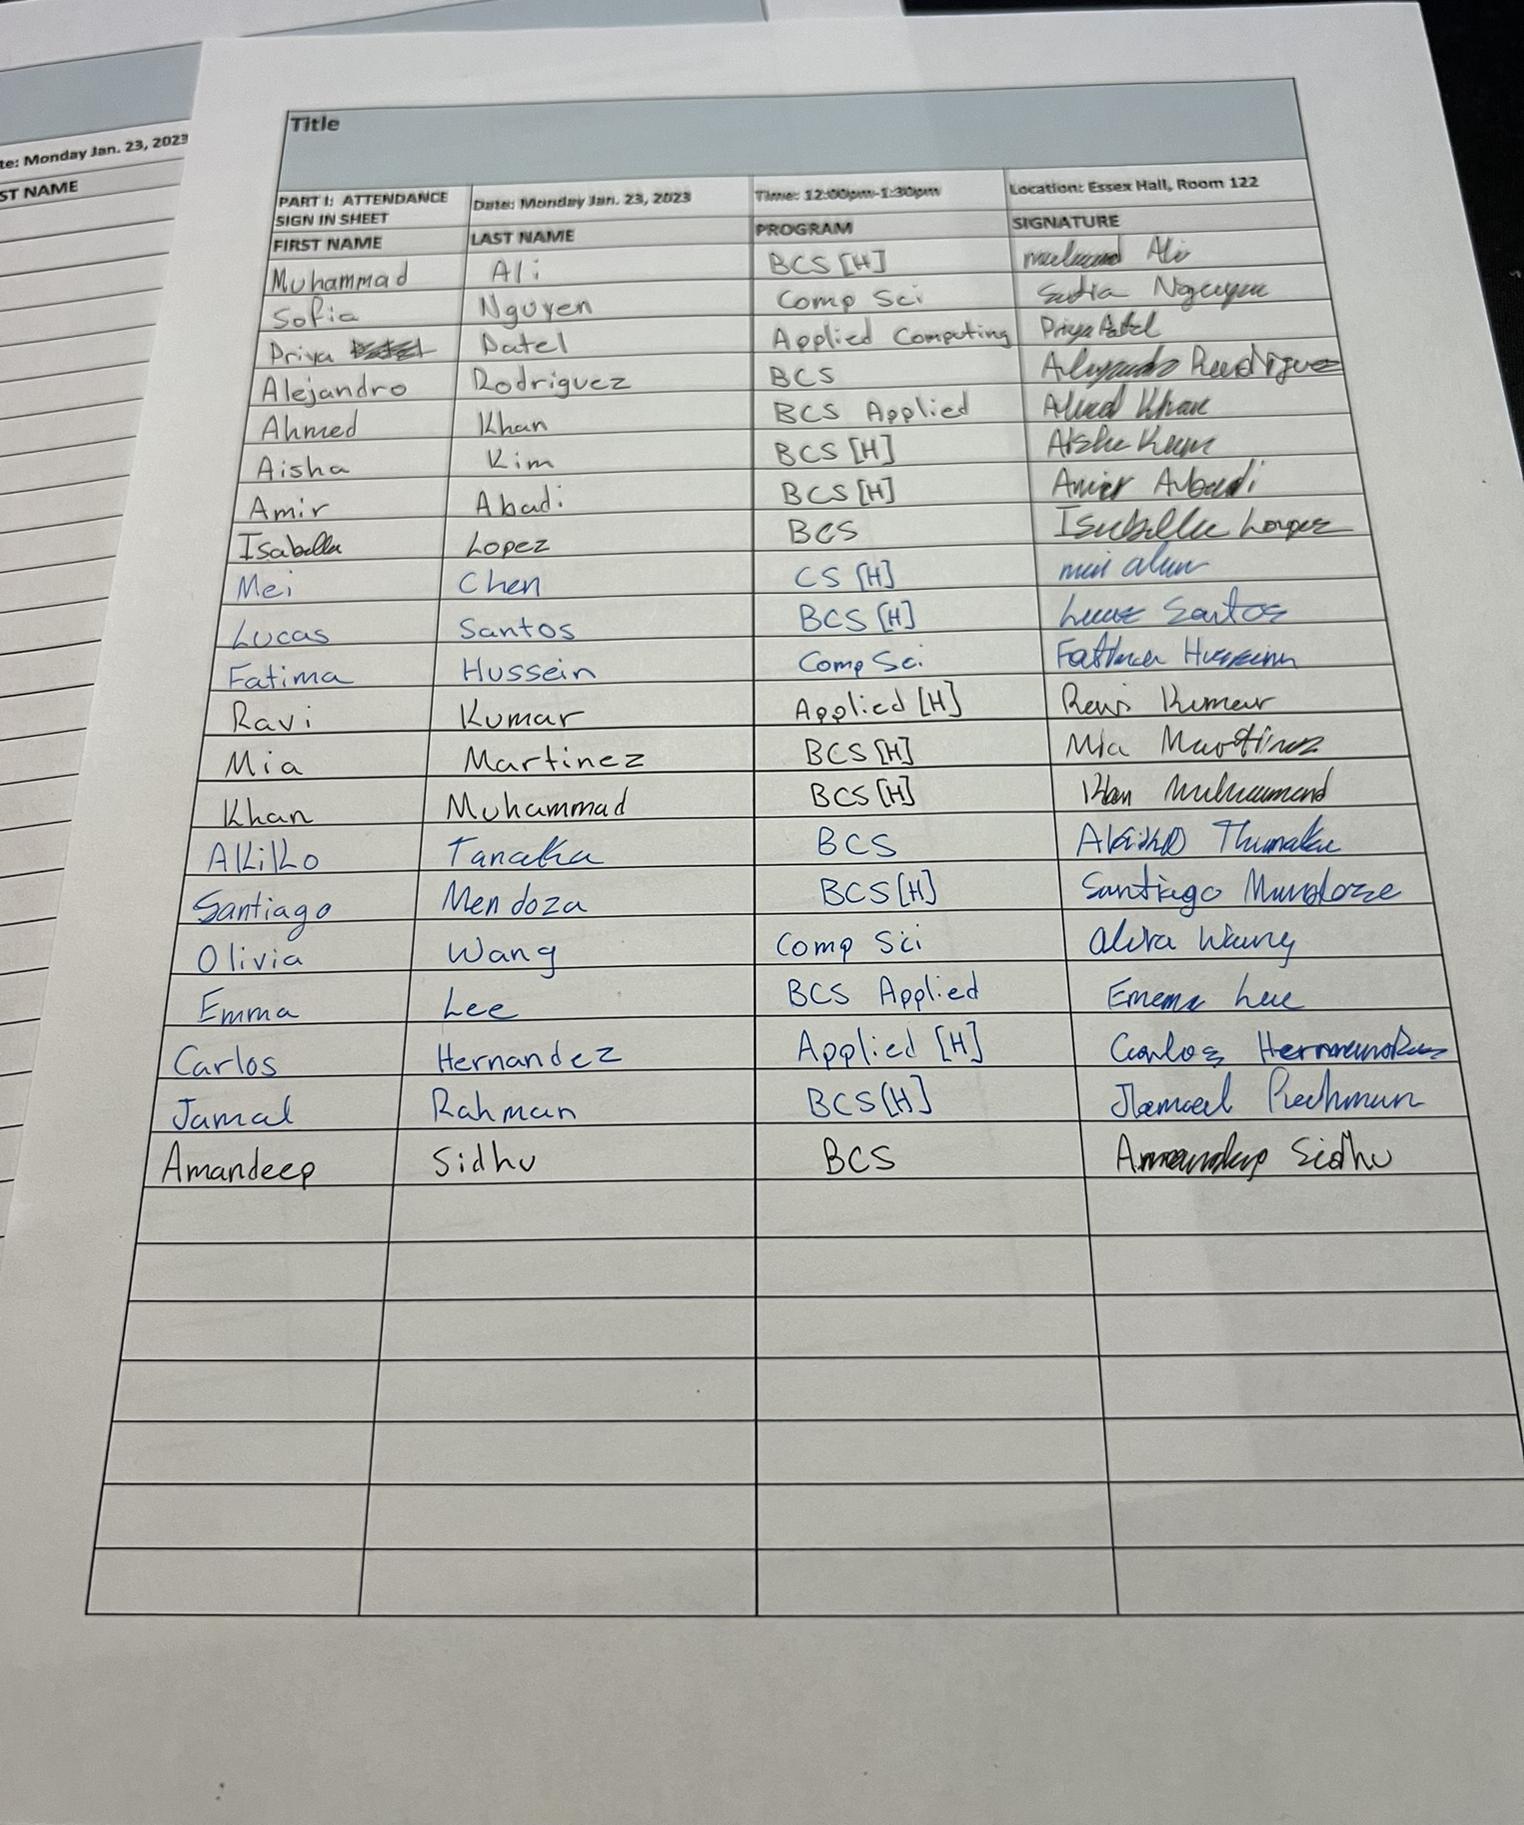 te: Monday Jan. 23, 2023
ST NAME
Title
PART I: ATTENDANCE SIGN IN SHEET Date: Monday Jan. 23, 2023 Time: 12:00pm-1:30pm Location: Essex Hall, Room 122
FIRST NAME LAST NAME PROGRAM SIGNATURE
Muhammad Ali BCS [H] Ali
Sofia Nguyen Comp Sci Sofia Nguyen
Priya Patel Applied Computing Priya Patel
Alejandro Rodriguez BCS Alejandro Rodriguez
Ahmed Khan BCS Applied Ahmed Khan
Aisha Kim BCS [H] Aisha Kim
Amir Abadi BCS [H] Amir Abadi
Isabella Lopez BCS Isabella Lopez
Mei Chen CS [H] Mei Chen
Lucas Santos BCS [H] Lucas Santos
Fatima Hussein Comp Sci Fatima Hussein
Ravi Kumar Applied [H] Ravi Kumar
Mia Martinez BCS [H] Mia Martinez
Khan Muhammad BCS [H] Khan Muhammad
Akiko Tanaka BCS Akiko Tanaka
Santiago Mendoza BCS [H] Santiago Mendoza
Olivia Wang Comp Sci Olivia Wang
Emma Lee BCS Applied Emma Lee
Carlos Hernandez Applied [H] Carlos Hernandez
Jamal Rahman BCS [H] Jamal Rahman
Amandeep Sidhu BCS Amandeep Sidhu